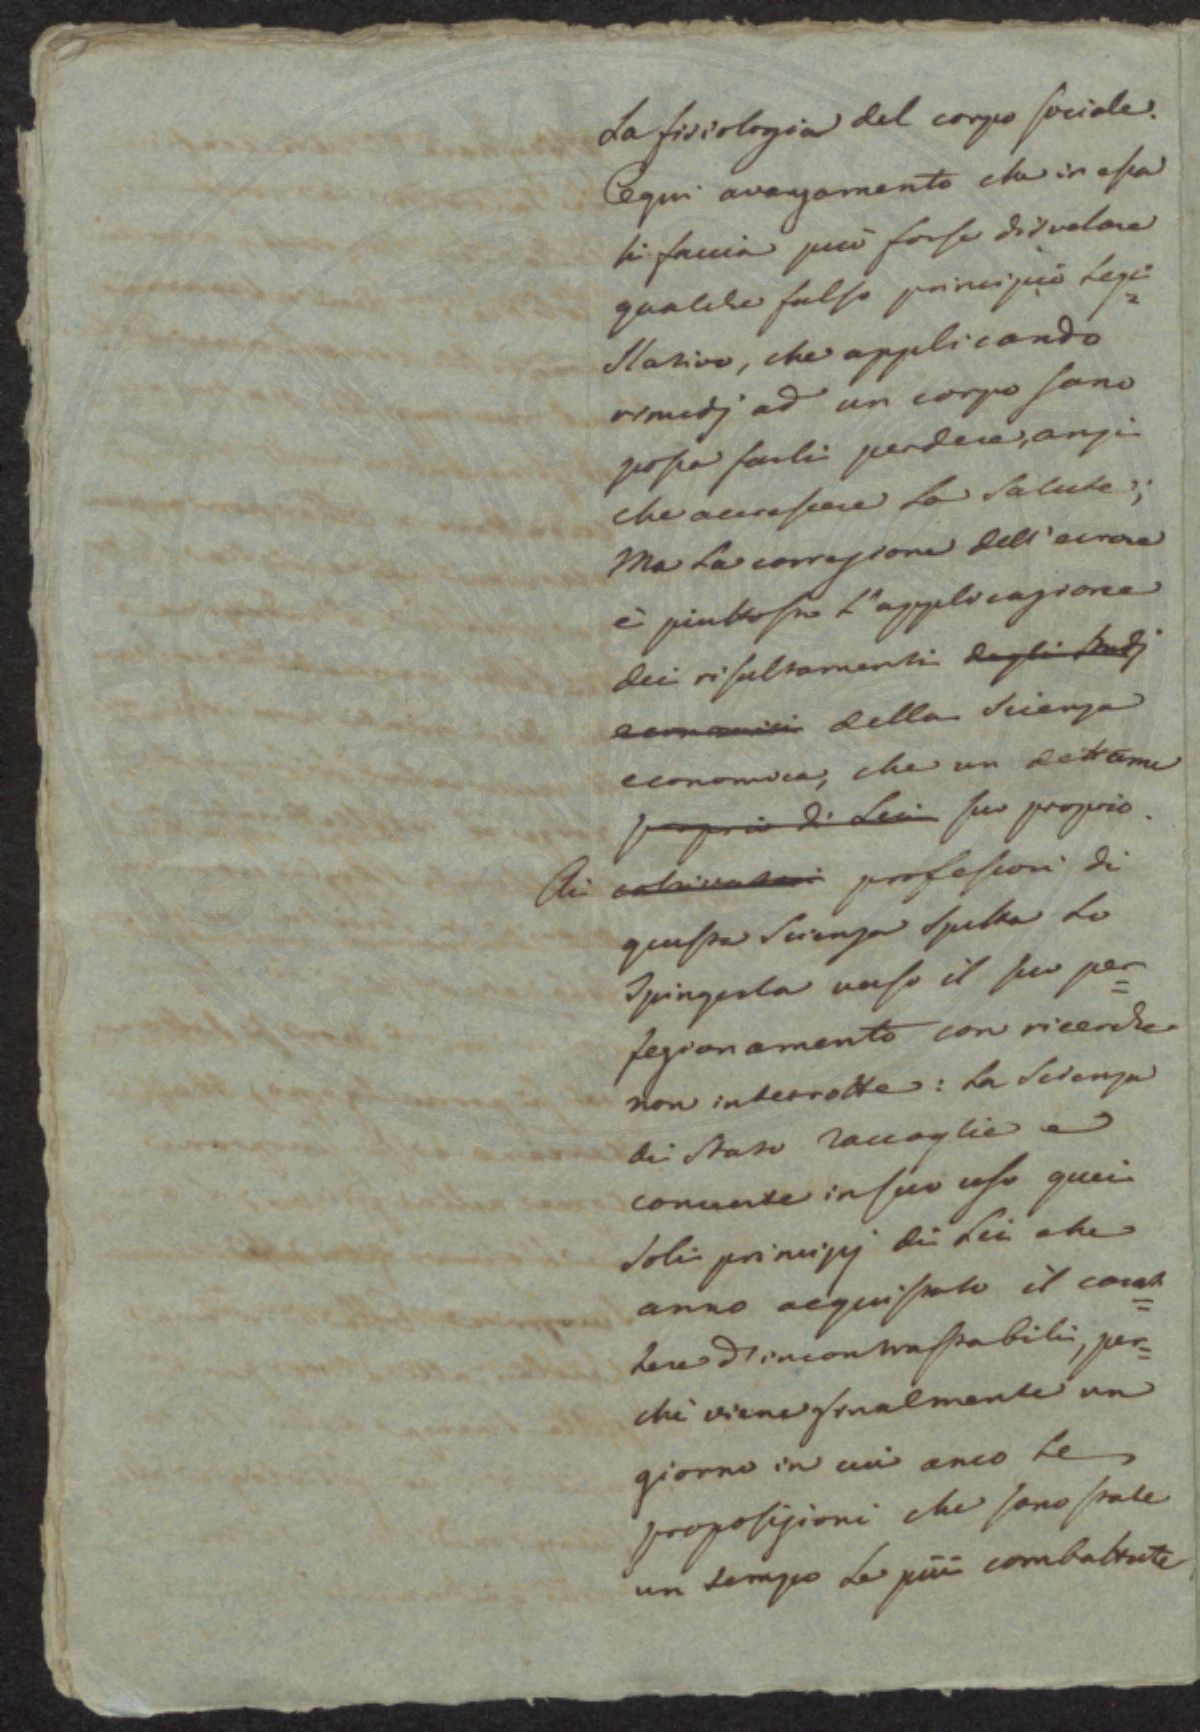 La fisiologia del corpo sociale.
Ogni avanzamento che in essa
si faccia può forse disvelare
qualche falso principio Legi=
slativo, che applicando
rimedj ad un corpo sano
possa farli perdere, anzi
che accrescere La Salute;
Ma La correzione dell'errore
è piuttosto L'applicazione
dei risultamenti degli studj
economici della Scienza
economica, che un dettame
proprio di Lei suo proprio.
Ai coltivatori professori di
questa Scienza spetta Lo
Spingerla verso il suo per=
fezionamento con ricerche
non interrotte: La Scienza
di Stato raccoglie e
converte in suo uso quei
Soli principj di Lei che
anno acquistato il carat=
tere d'incontrastabili, per=
chè viene finalmente un
giorno in cui anco Le
proposizioni che sono state
un tempo Le più combattute